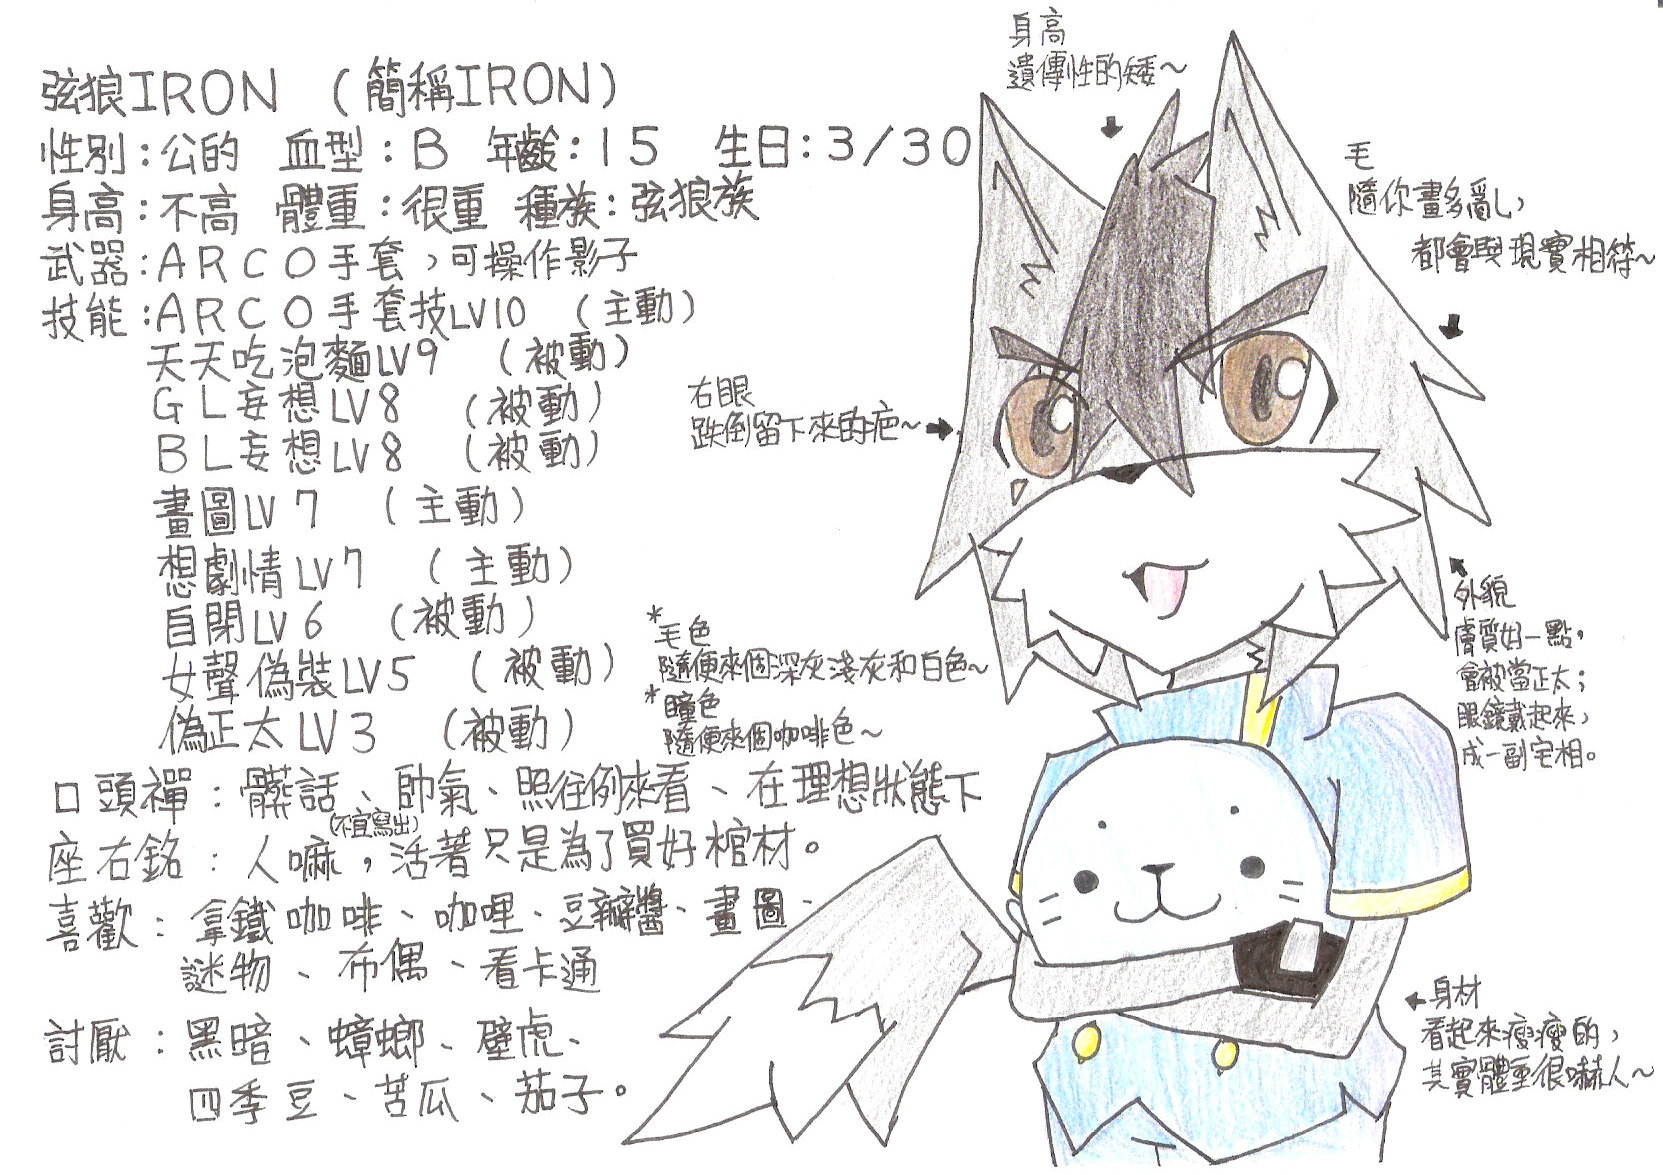 弦狼IRON （簡稱IRON）
性別：公的 血型：B 年齡：15 生日：3/30
身高：不高 體重：很重 種族：弦狼族
武器：ARCO手套，可操作影子
技能：ARCO手套技LV10 （主動）
天天吃泡麵LV9 （被動）
GL妄想LV8 （被動）
BL妄想LV8 （被動）
畫圖LV7 （主動）
想劇情LV7 （主動）
自閉LV6 （被動）
女聲偽裝LV5 （被動）
偽正太LV3 （被動）
口頭禪：髒話、帥氣、照往例來看、在理想狀態下
(不宜寫出)
座右銘：人嘛，活著只是為了買好棺材。
喜歡：拿鐵咖啡、咖哩、豆瓣醬、畫圖、
謎物、布偶、看卡通
討厭：黑暗、蟑螂、壁虎、
四季豆、苦瓜、茄子。
身高
遺傳性的矮～
毛
隨你畫多亂，
都會與現實相符～
右眼
跌倒留下來的疤～
*毛色
隨便來個深灰淺灰和白色～
*瞳色
隨便來個咖啡色～
外貌
膚質好一點，
會被當正太；
眼鏡戴起來，
成一副宅相。
身材
看起來瘦瘦的，
其實體重很嚇人～